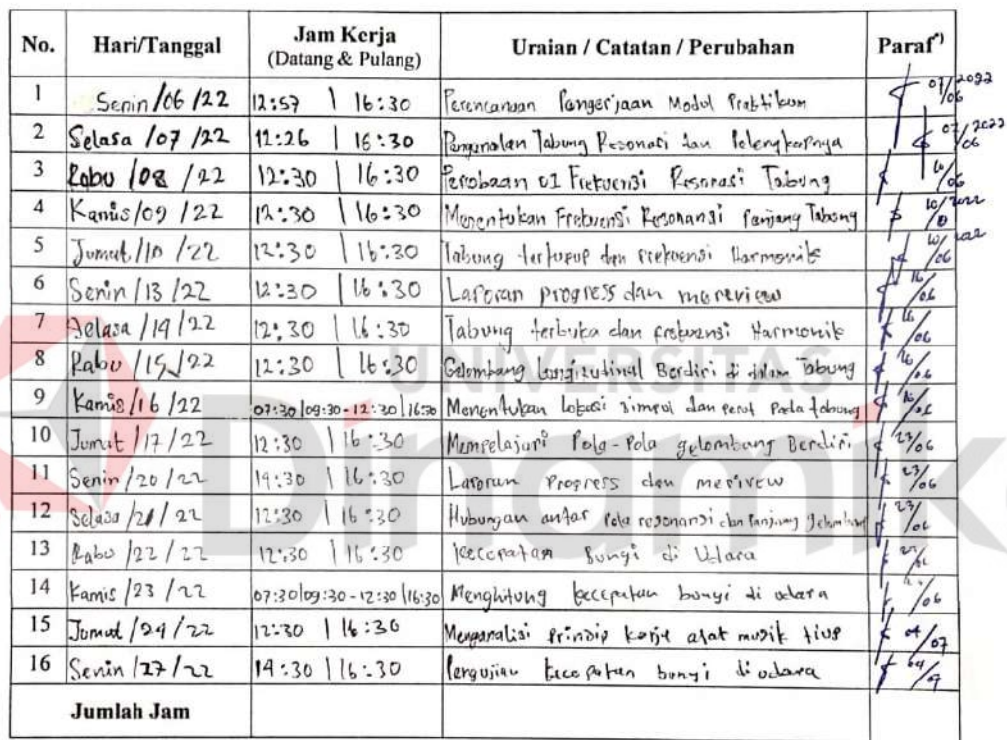 No. Hari/Tanggal Jam Kerja (Datang & Pulang) Uraian / Catatan / Perubahan Paraf*)
1 Senin /06 /22 12:57 | 16:30 Perencanaan Pengerjaan Modul Praktikum 07/06 2022
2 Selasa /07 /22 12:26 | 16:30 Pengenalan Tabung Resonasi dan Pelengkapnya 07/06 2022
3 Rabu /08 /22 12:30 | 16:30 Percobaan 01 Frekuensi Resonasi Tabung 10/06
4 Kamis/09 /22 12:30 | 16:30 Menentukan Frekuensi Resonansi Panjang Tabung 10/
5 Jumat /10 /22 12:30 | 16:30 Tabung tertutup dan frekuensi Harmonik 10/06
6 Senin /13 /22 12:30 | 16:30 Laporan progress dan mereview 16/06
7 Selasa /14 /22 12:30 | 16:30 Tabung terbuka dan frekuensi Harmonik 16/06
8 Rabu /15 /22 12:30 | 16:30 Gelombang Longitutinal Berdiri di dalam Tabung 16/06
9 Kamis /16 /22 07:30|09:30-12:30|16:30 Menentukan lokasi simpul dan perut Pada tabung 16/06
10 Jumat /17 /22 12:30 | 16:30 Mempelajari Pola-Pola gelombang Berdiri 23/06
11 Senin /20 /22 14:30 | 16:30 Laporan Progress dan merivew 23/06
12 Selasa /21 / 22 12:30 | 16:30 Hubungan antar Pola resonansi dan Panjang Gelombang 23/06
13 Rabu /22 / 22 12:30 | 16:30 kecepatan Bunyi di Udara
14 Kamis /23 /22 07:30|09:30-12:30|16:30 Menghitung kecepatan bunyi di udara /06
15 Jumat /24 /22 12:30 | 16:30 Menganalisi Prinsip kerja alat musik tiup 04/07
16 Senin /27 /22 14:30 | 16:30 Pengujian kecepatan bunyi di udara
Jumlah Jam
UNIVERSITAS
Dinamika